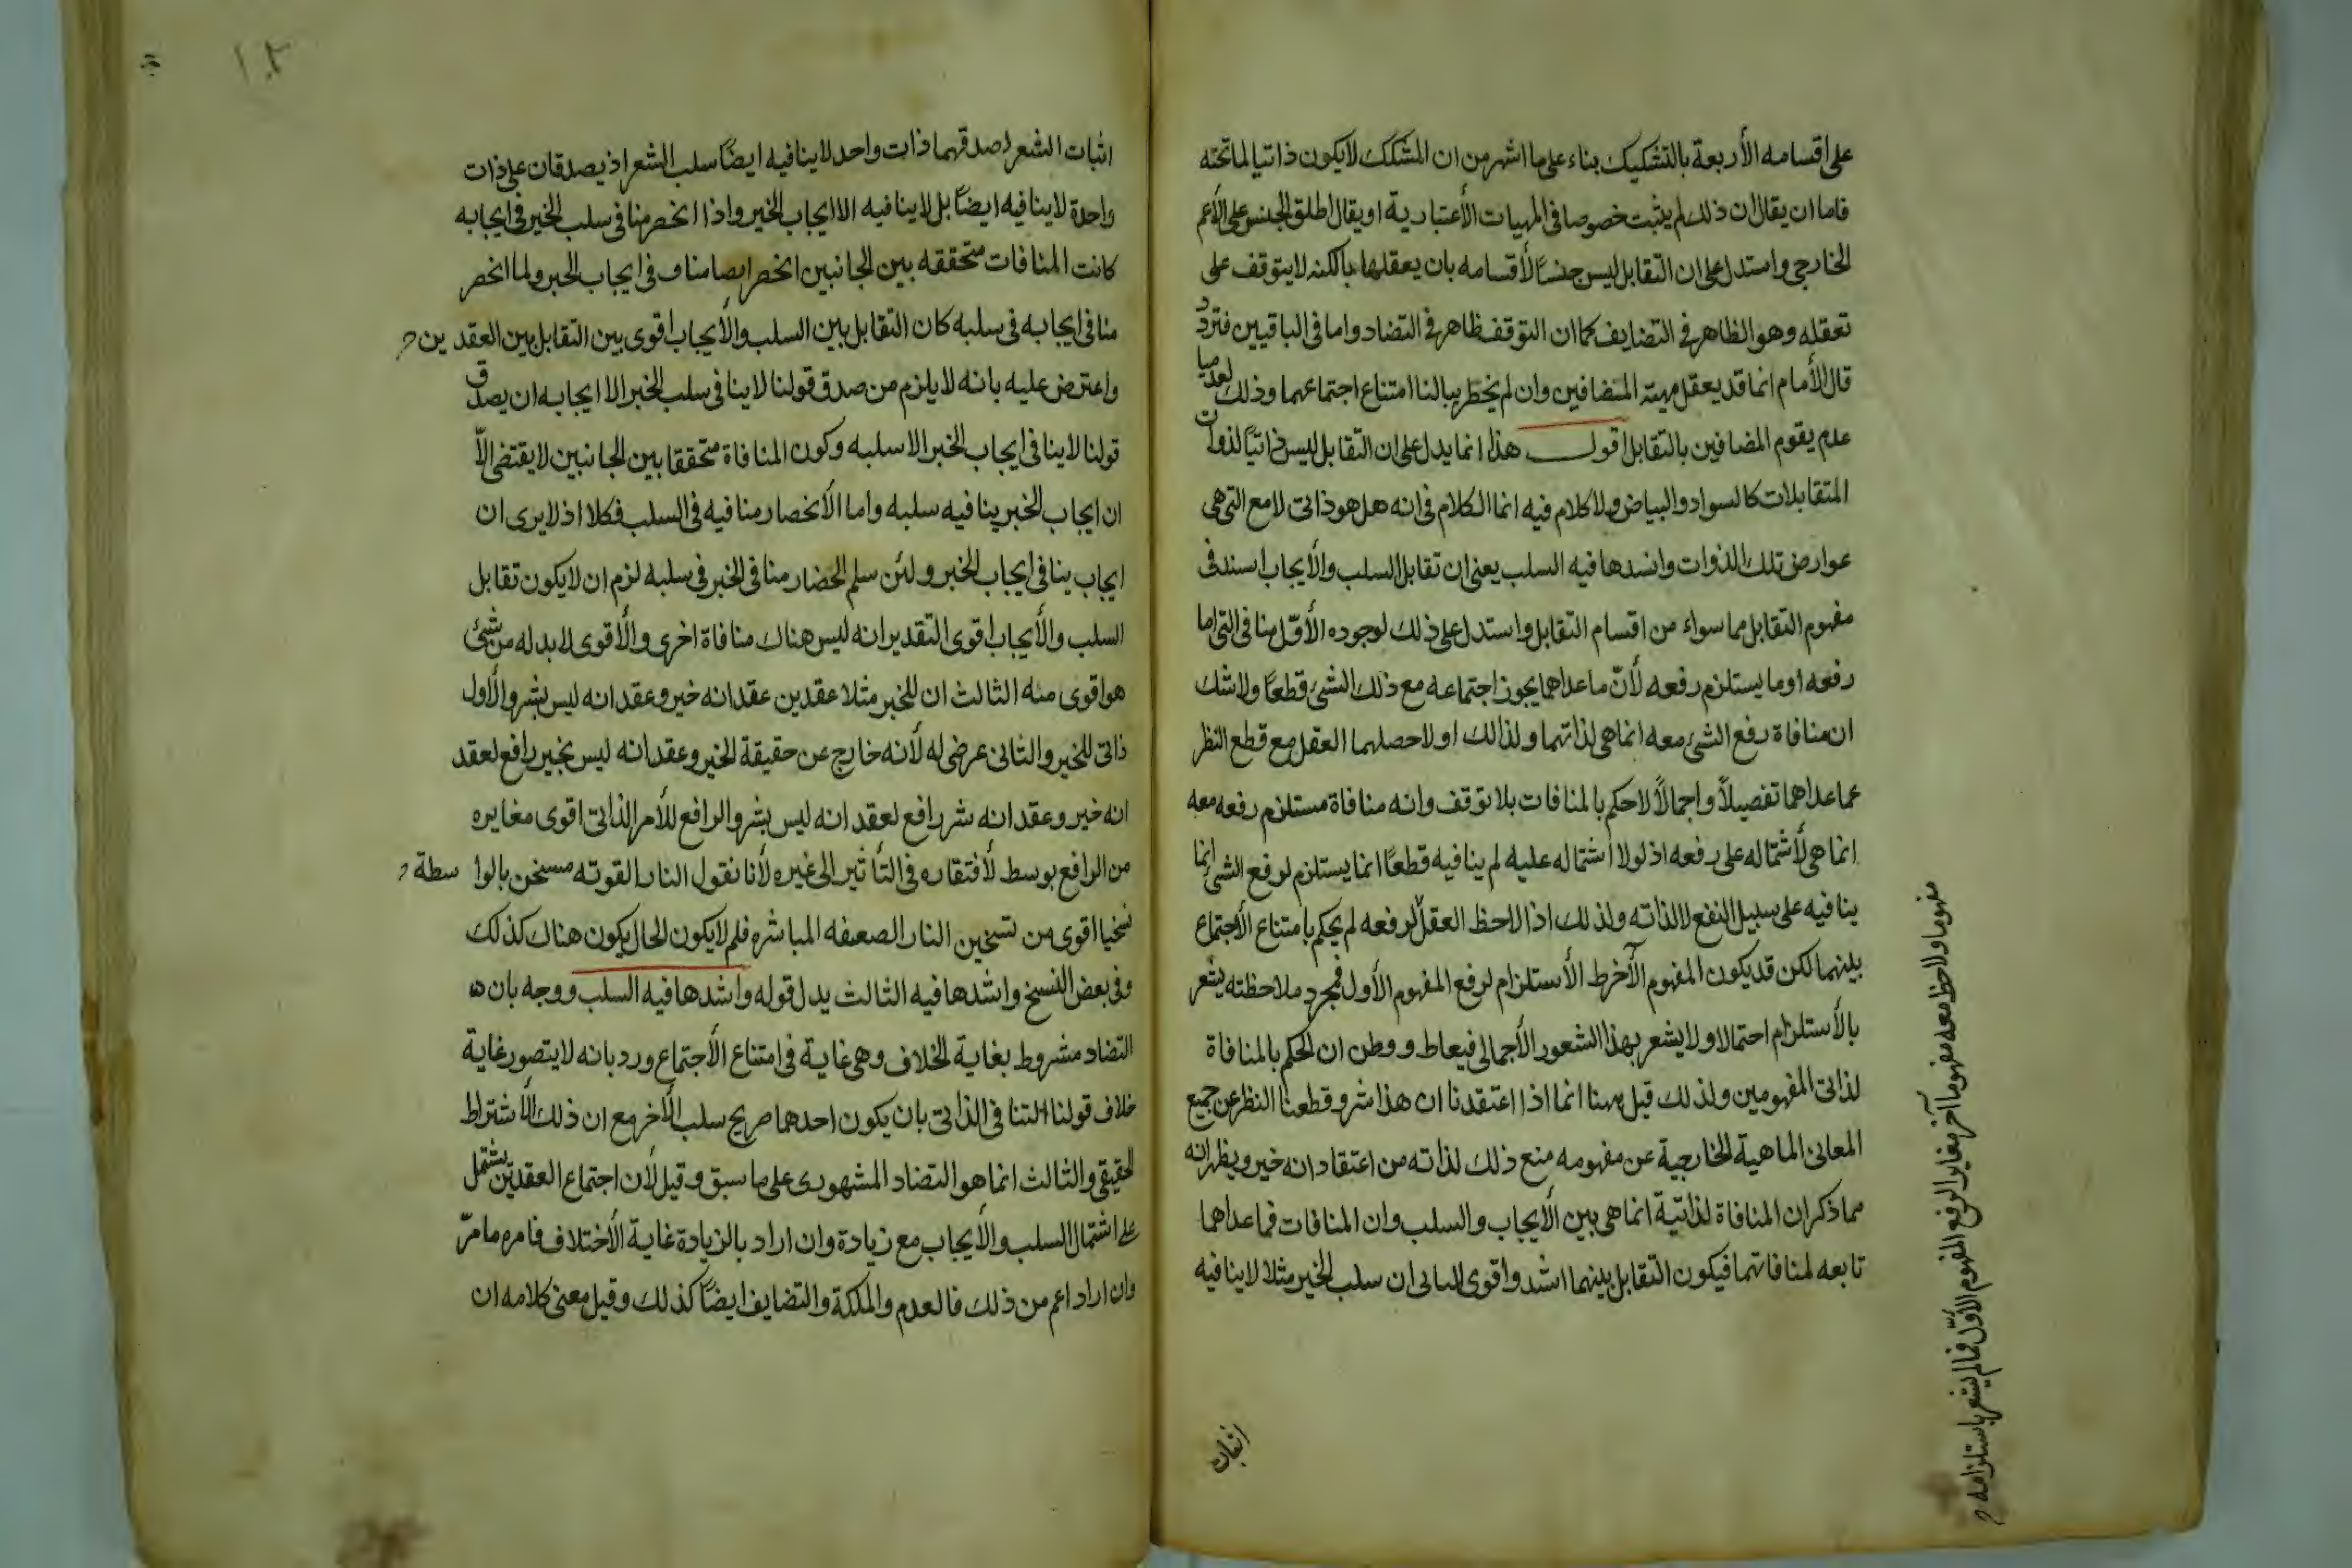 على اقسامه الأربعة بالتشكيك بناء على ما اشهر من ان المشكك لا يكون ذاتيا لما تحته
فاما ان يقال ان ذلك لم يثبت خصوصا فى المهيات الأعتبارية او يقال اطلق الجنس على الأعم
الخارجى واستدل على ان التقابل ليس جنسًا لأقسامه بان يعقلها بالكنه لا يتوقف على
تعقله وهو الظاهر فى التضايف كما ان التوقف ظاهر فى التضاد واما فى الباقيين فتردد
قال الأمام انما قد يعقل مهية المتضافين وان لم يخطر ببالنا امتناع اجتماعهما وذلك
عدم يقوم المضافين بالتقابل اقول هذا انما يدل على ان التقابل ليس ذاتيًا لذوات
المتقابلات كالسواد والبياض ولا كلام فيه انما الكلام فى انه هل هو ذاتى لامع التى هى
عوارض تلك الذوات وانسدها فيه السلب يعنى ان تقابل السلب والأيجاب اسند فى
مفهوم التقابل مما سواء من اقسام التقابل واستدل على ذلك لوجوده الأوّل منافى التى اما
رفعه او ما يستلزم رفعه لأنّ ما عداهما يجوز اجتماعه مع ذلك الشئ قطعًا ولا شك
ان منافاة رفع الشئ معه انما هى لذاتهما ولذالك اولا حصلهما العقل مع قطع النظر
عما عداهما تفصيلاً واجمالاً لاحكم بالمنافات بلا توقف وانه منافاة مستلزم رفعه معه
انما هى لأشتماله على رفعه اذ لولا اشتماله عليه لم ينافيه قطعًا انما يستلزم لرفع الشئ انما
ينافيه على سبيل النفع لا لذاته ولذلك اذا لاحظ العقل لرفعه لم يحكم بامتناع الأجتماع
بينهما لكن قد يكون المفهوم الآخر الأستلزام لرفع المفهوم الأول فمجرد ملاحظته يشعر
بالأستلزام احتمالا ولا يشعر بهذا الشعور الأجمالى فيعاط ووطن ان الحكم بالمنافاة
لذاتى المفهومين ولذلك قيل بهنا انما اذا اعتقدنا ان هذا شر وقطعنا النظر عن جميع
المعانى الماهية الخارجية عن مفهومه منع ذلك لذاته من اعتقاد انه خير ويظهر انه
مما ذكر ان المنافاة لذاتية انما هى بين الأيجاب والسلب وان المنافات فما عداهما
تابعه لمنافاتهما فيكون التقابل بينهما اشد واقوى الثانى ان سلب الخير مثلا لا ينافيه
اثبات
مفهوما ولاحظ معه مفهوما آخر مغاير الرفع المفهوم الأوّل فما لم يشعر باستلزامه
١٠٢
اثبات الشعر اصدقهما ذات واحد لا ينافيه ايضًا سلب الشعر اذ يصدقان على ذات
واحدة لا ينافيه ايضًا بل لا ينافيه الا ايجاب الخير واذا انحصر منافى سلب الخير فى ايجابه
كانت المنافات متحققه بين الجانبين انحصر ايضا مناف فى ايجاب الخبر ولما انحصر
منافى ايجابه فى سلبه كان التقابل بين السلب والأيجاب اقوى بين التقابل بين العقدين
واعترض عليه بانه لا يلزم من صدق قولنا لا ينافى سلب الخبر الا ايجابه ان يصدق
قولنا لا ينافى ايجاب الخبر الا سلبه وكون المنافاة متحققا بين الجانبين لا يقتضى الّا
ان ايجاب الخبر ينافيه سلبه واما الأنحصار منافيه فى السلب فكلا اذ لا يرى ان
ايجاب ينافى ايجاب الخبر ولئن سلم الحضار منافى الخبر فى سلبه لزم ان لا يكون تقابل
السلب والأيجاب اقوى التقدير انه ليس هناك منافاة اخرى والأقوى لابد له من شئ
هو اقوى منه الثالث ان للخبر مثلا عقدين عقد انه خير وعقد انه ليس بشر والأول
ذاتى للخير والثانى عرضى له لأنه خارج عن حقيقة الخير وعقد انه ليس بخير رافع لعقد
انه خير وعقد انه شر رافع لعقد انه ليس بشر والرافع للأمر الذاتى اقوى مغايره
من الرافع بوسط لأفتقاره فى التأثير الى غيره لأنا نقول النار القوته مسخن بالواسطة
تسخيا اقوى من تسخين النار الصعيفه المباشره فلم لا يكون الحال يكون هناك كذلك
وفى بعض النسخ واشدها فيه الثالث يدل قوله واشدها فيه السلب ووجه بان
التضاد مشروط بغاية الخلاف وهى غاية فى امتناع الأجتماع ورد بانه لا يتصور غاية
خلاف قولنا التنافى الذاتى بان يكون احدهما صريح سلب الأخر مع ان ذلك الأشتراط
الحقيقى والثالث انما هو التضاد المشهورى على ما سبق وقيل لأن اجتماع العقدين يشتمل
على اشتمال السلب والأيجاب مع زيادة وان اراد بالزيادة غاية الأختلاف فامره ما مرّ
وان اراد اعم من ذلك فالعدم والملكة والتضايف ايضًا كذلك وقيل معنى كلامه ان